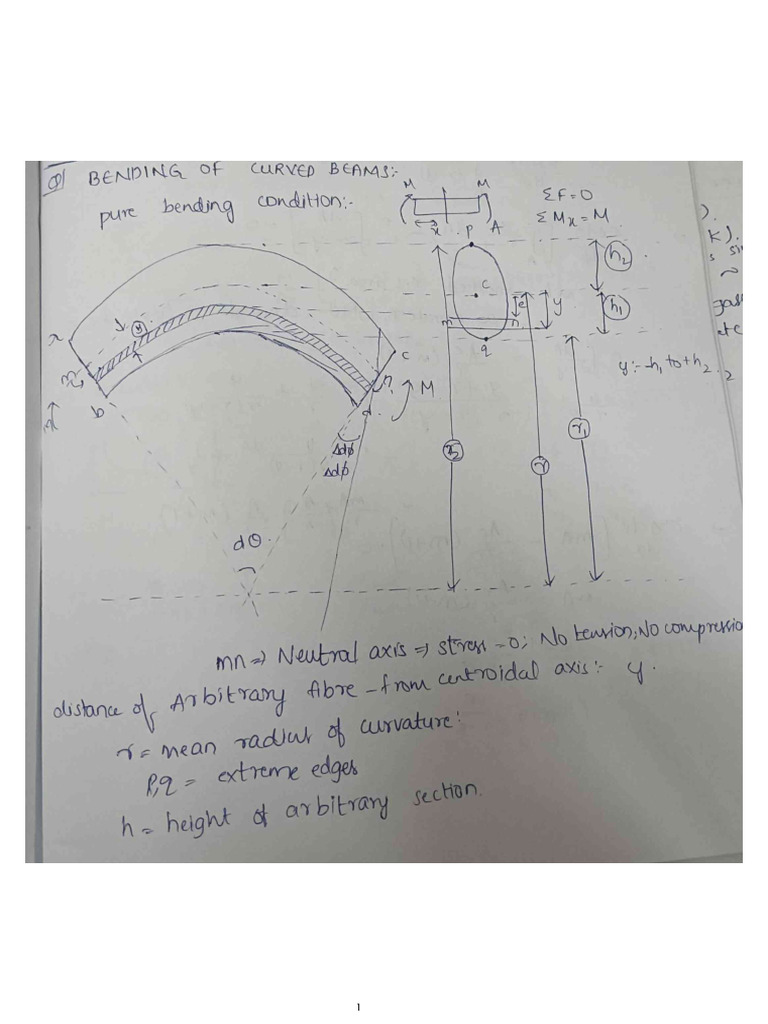 Q) BENDING OF CURVED BEAMS:-
pure bending condition:-
M M
x
ΣF=0
ΣMx=M
P A
h2
C
e y
h1
m n
q
y:- -h1 to +h2
a
y
m
b
c
n
d
M
Δdφ
Δdφ
r2
r
r1
dθ
mn => Neutral axis => stress=0; No tension, No compressio
distance of Arbitrary fibre from centroidal axis:- y.
r = mean radius of curvature:
P,q = extreme edges
h = height of arbitrary section.
).
K).
etc
2
1